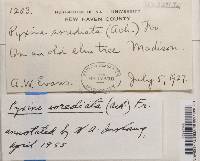 1203.
NEW HAVEN COUNTY
Pyxine sorediata (Ach.) Fr.
On an old elm tree Madison.
A. W. Evans. July 5, 1927.
Pyxine sorediata (Ach.) Fr.
annotated by
April 1985